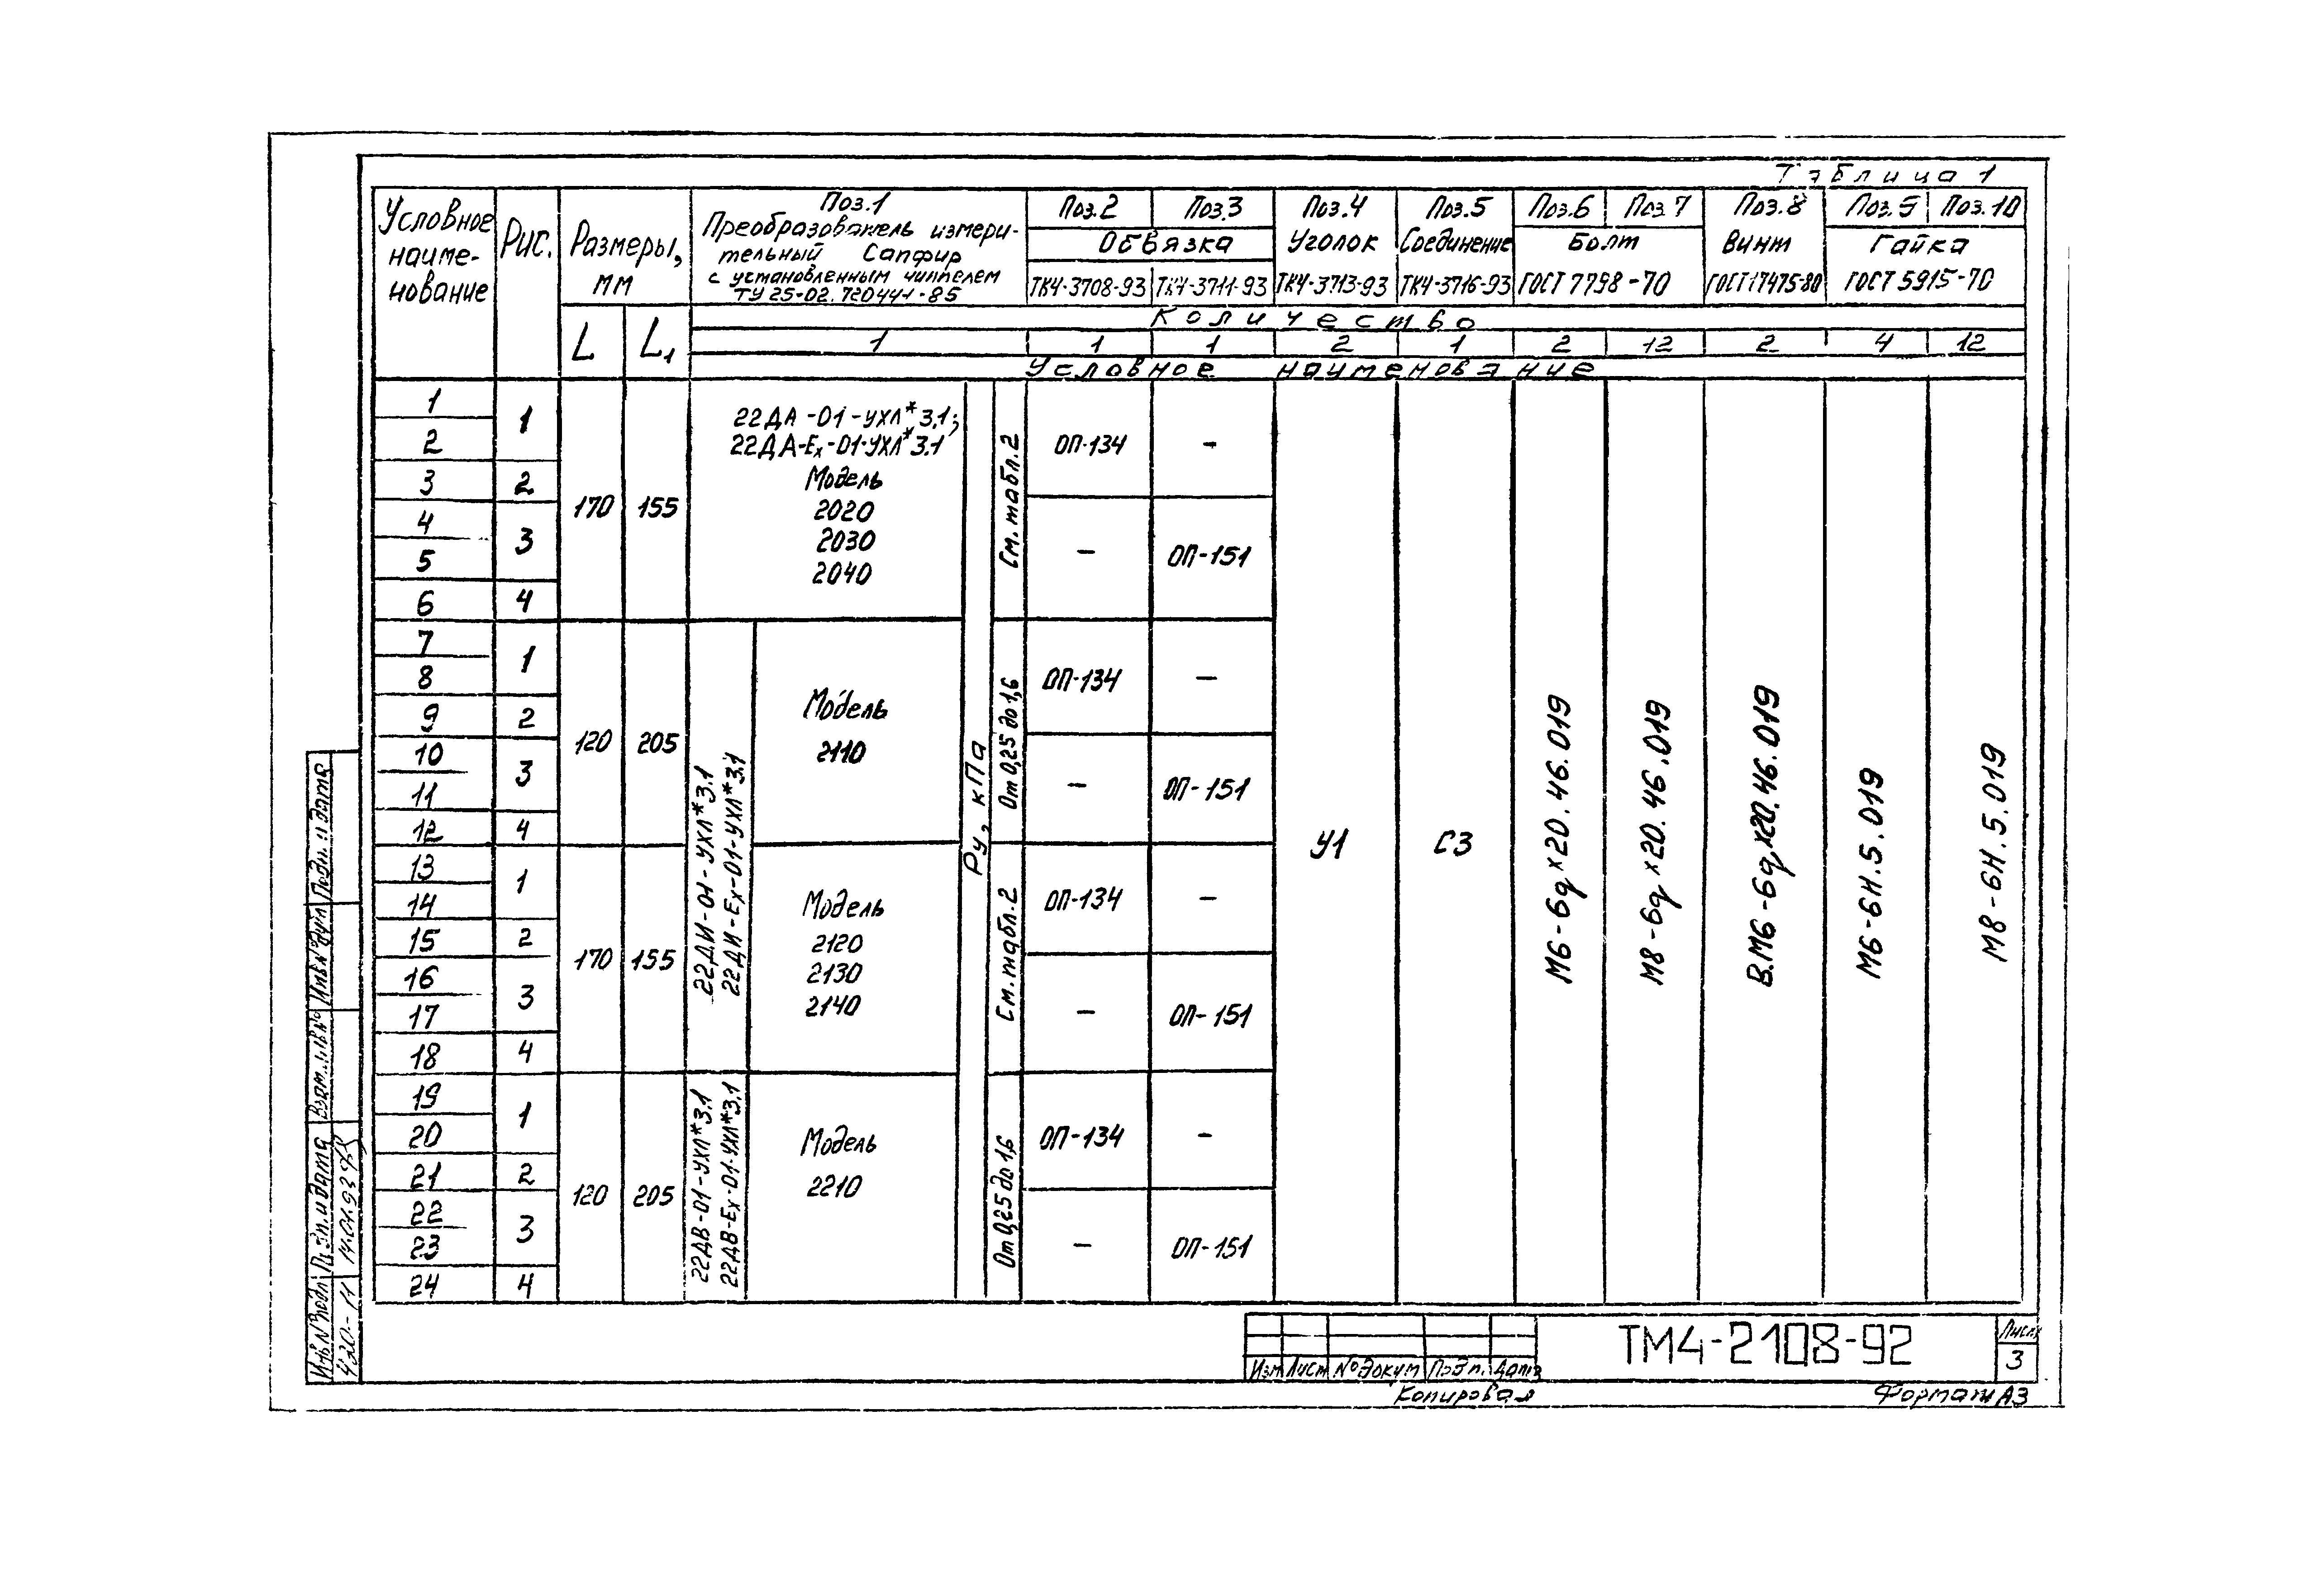 Таблица 1
Условное
наиме-
нование
Рис.
Размеры,
мм
L
L1
Поз.1
Преобразователь измери-
тельный Сапфир
с установленным ниппелем
ТУ 25-02.720441-85
Поз.2
Поз.3
Обвязка
ТК4-3708-93
ТК4-3711-93
Поз.4
Уголок
ТК4-3713-93
Поз.5
Соединение
ТК4-3716-93
Поз.6
Поз.7
Болт
ГОСТ 7798-70
Поз.8
Винт
ГОСТ 17475-80
Поз.9
Поз.10
Гайка
ГОСТ 5915-70
Количество
1 1 1 2 1 2 12 2 4 12
Условное наименование
1
2
3
4
5
6
7
8
9
10
11
12
13
14
15
16
17
18
19
20
21
22
23
24
1
2
3
4
1
2
3
4
1
2
3
4
1
2
3
4
170 155
120 205
170 155
120 205
22ДА-01-УХЛ*3.1;
22ДА-Ех-01-УХЛ*3.1
Модель
2020
2030
2040
22ДИ-01-УХЛ*3.1
22ДИ-Ех-01-УХЛ*3.1
Модель
2110
Модель
2120
2130
2140
22ДВ-01-УХЛ*3.1
22ДВ-Ех-01-УХЛ*3.1
Модель
2210
Ру, кПа
См. табл.2
От 0,25 до 1,6
См. табл.2
От 0,25 до 1,6
ОП-134 -
- ОП-151
ОП-134 -
- ОП-151
ОП-134 -
- ОП-151
ОП-134 -
- ОП-151
У1
С3
М6-6g×20.46.019
М8-6g×20.46.019
В.М6-6g×20.46.019
М6-6Н.5.019
М8-6Н.5.019
Подп. и дата
Инв № дубл
Взам. инв №
Подп. и дата
14.01.93
Инв № подл
Изм Лист № докум Подп. Дата
ТМ4-2108-92
Лист
3
Копировал
Формат А3